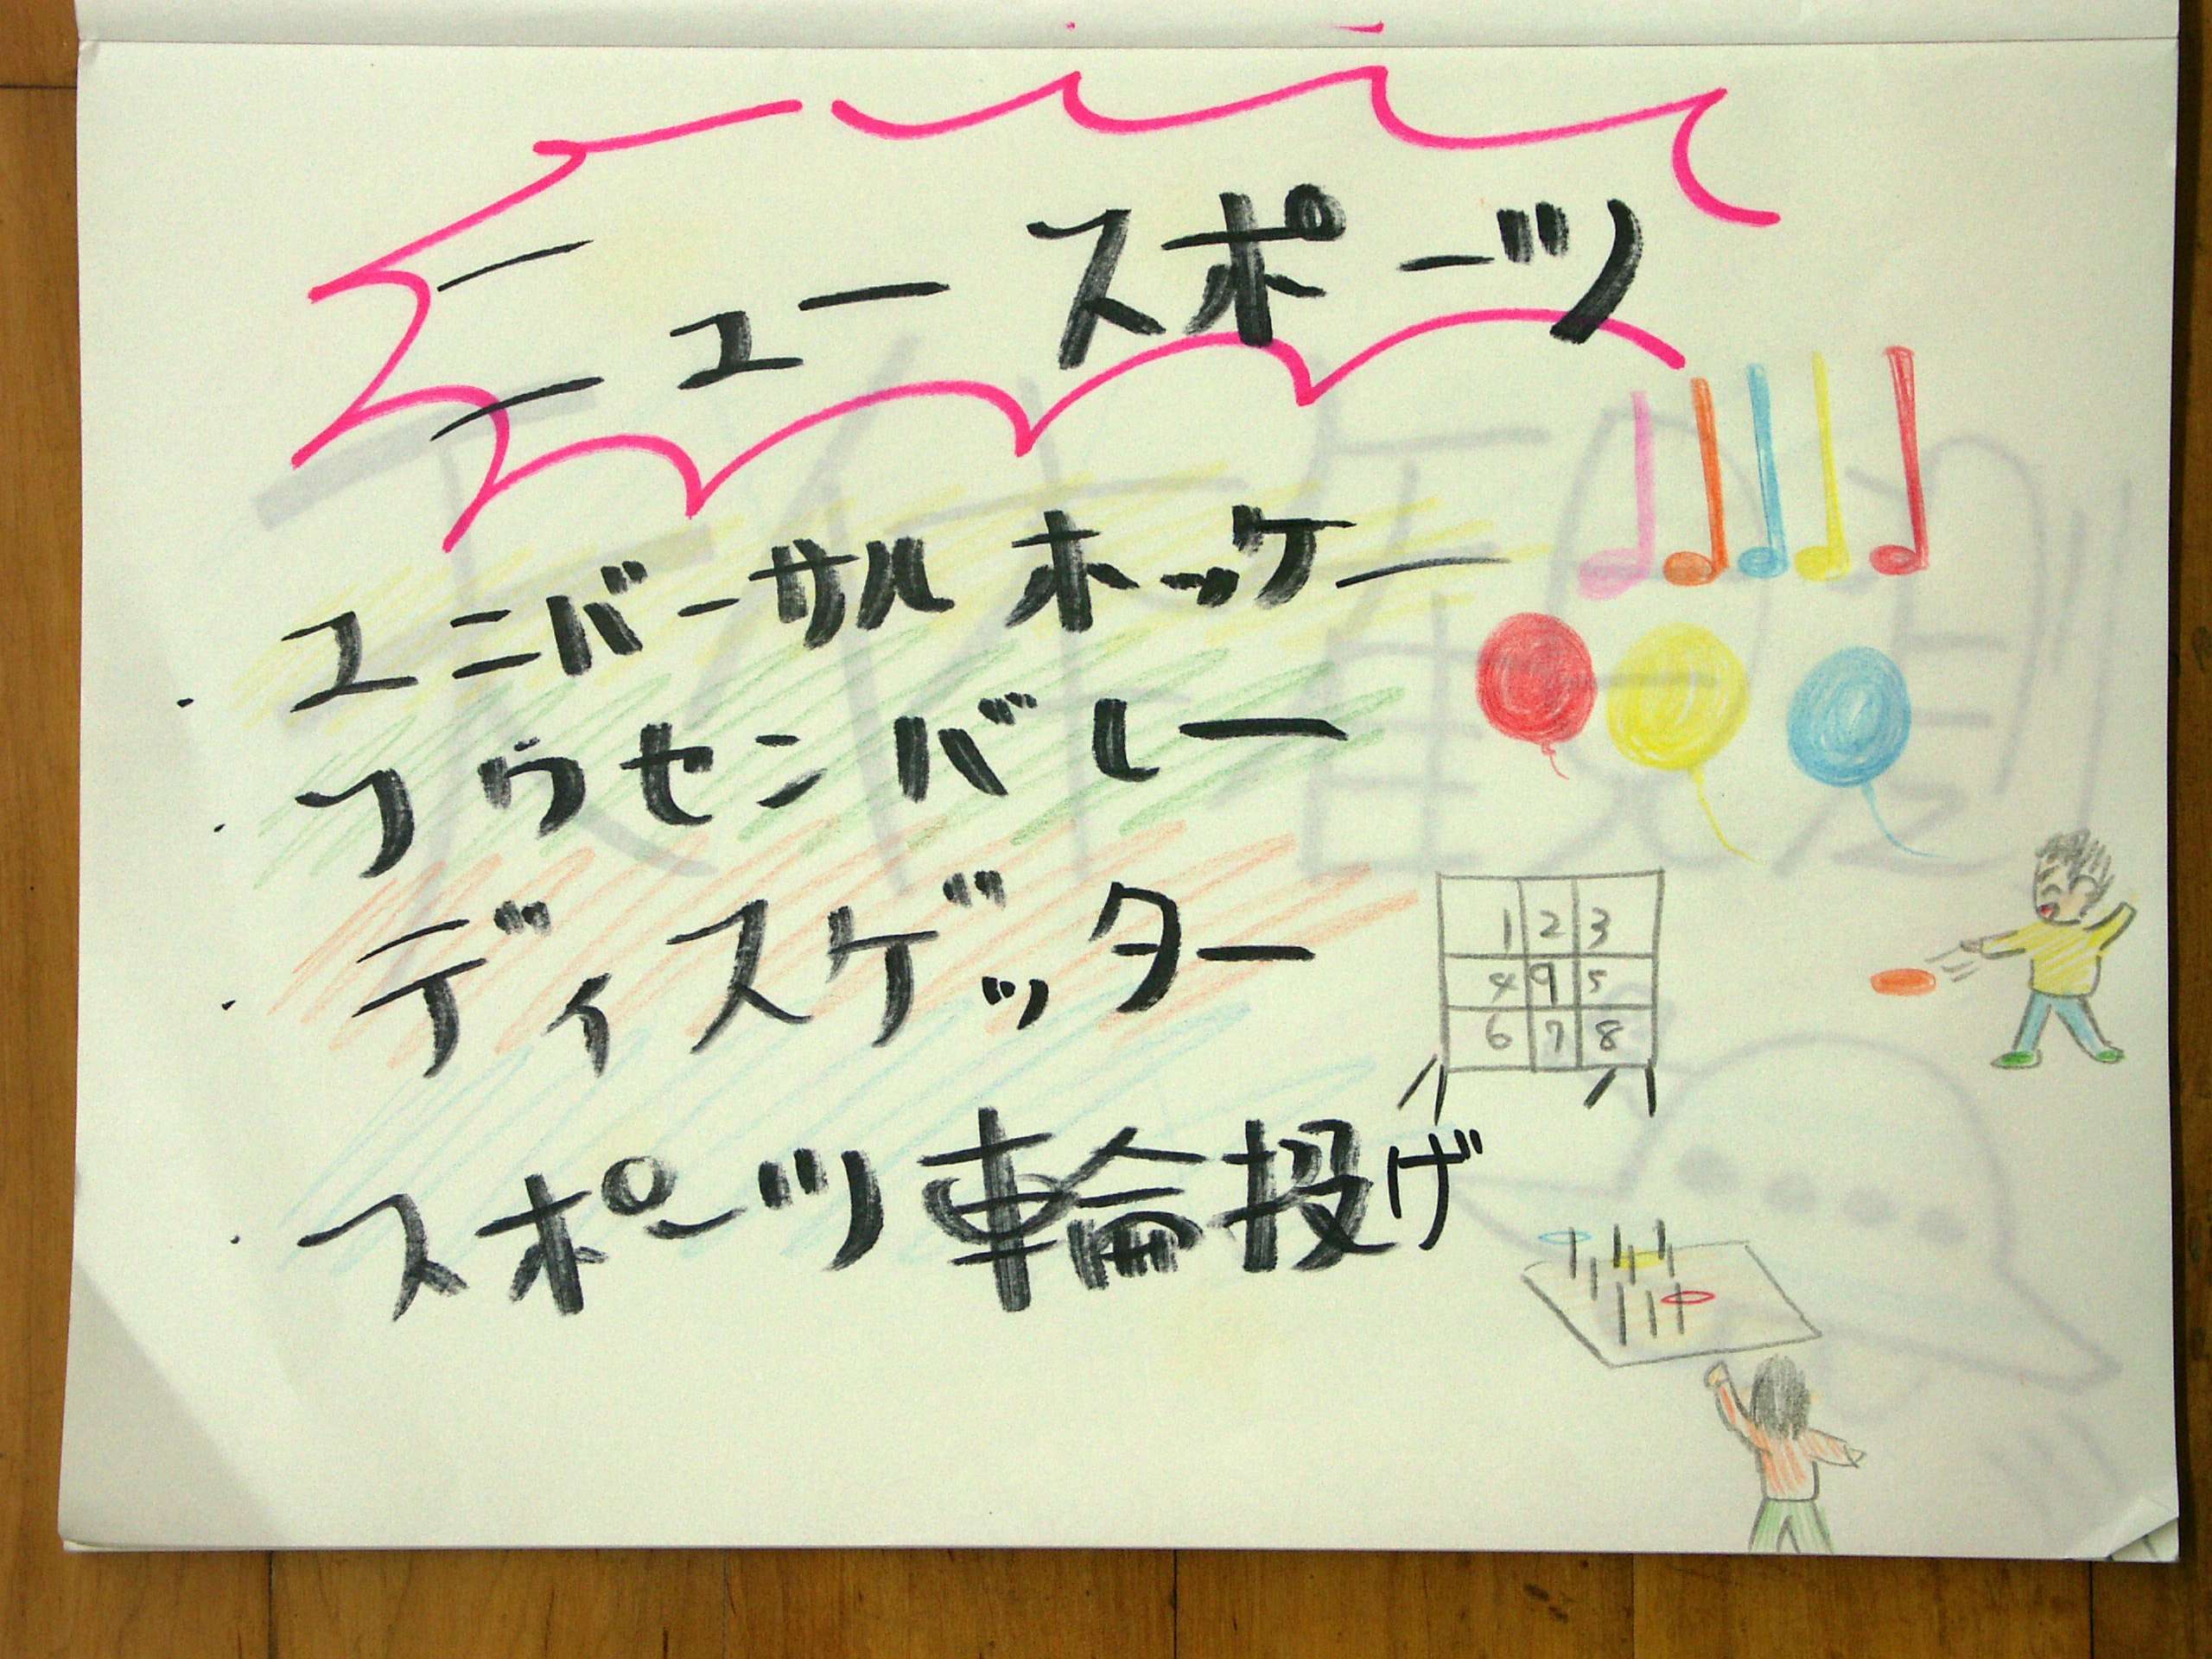 ニュースポーツ
・ユニバーサルホッケー
・フウセンバレー
・ディスゲッター
・スポーツ輪投げ
1 2 3
4 9 5
6 7 8